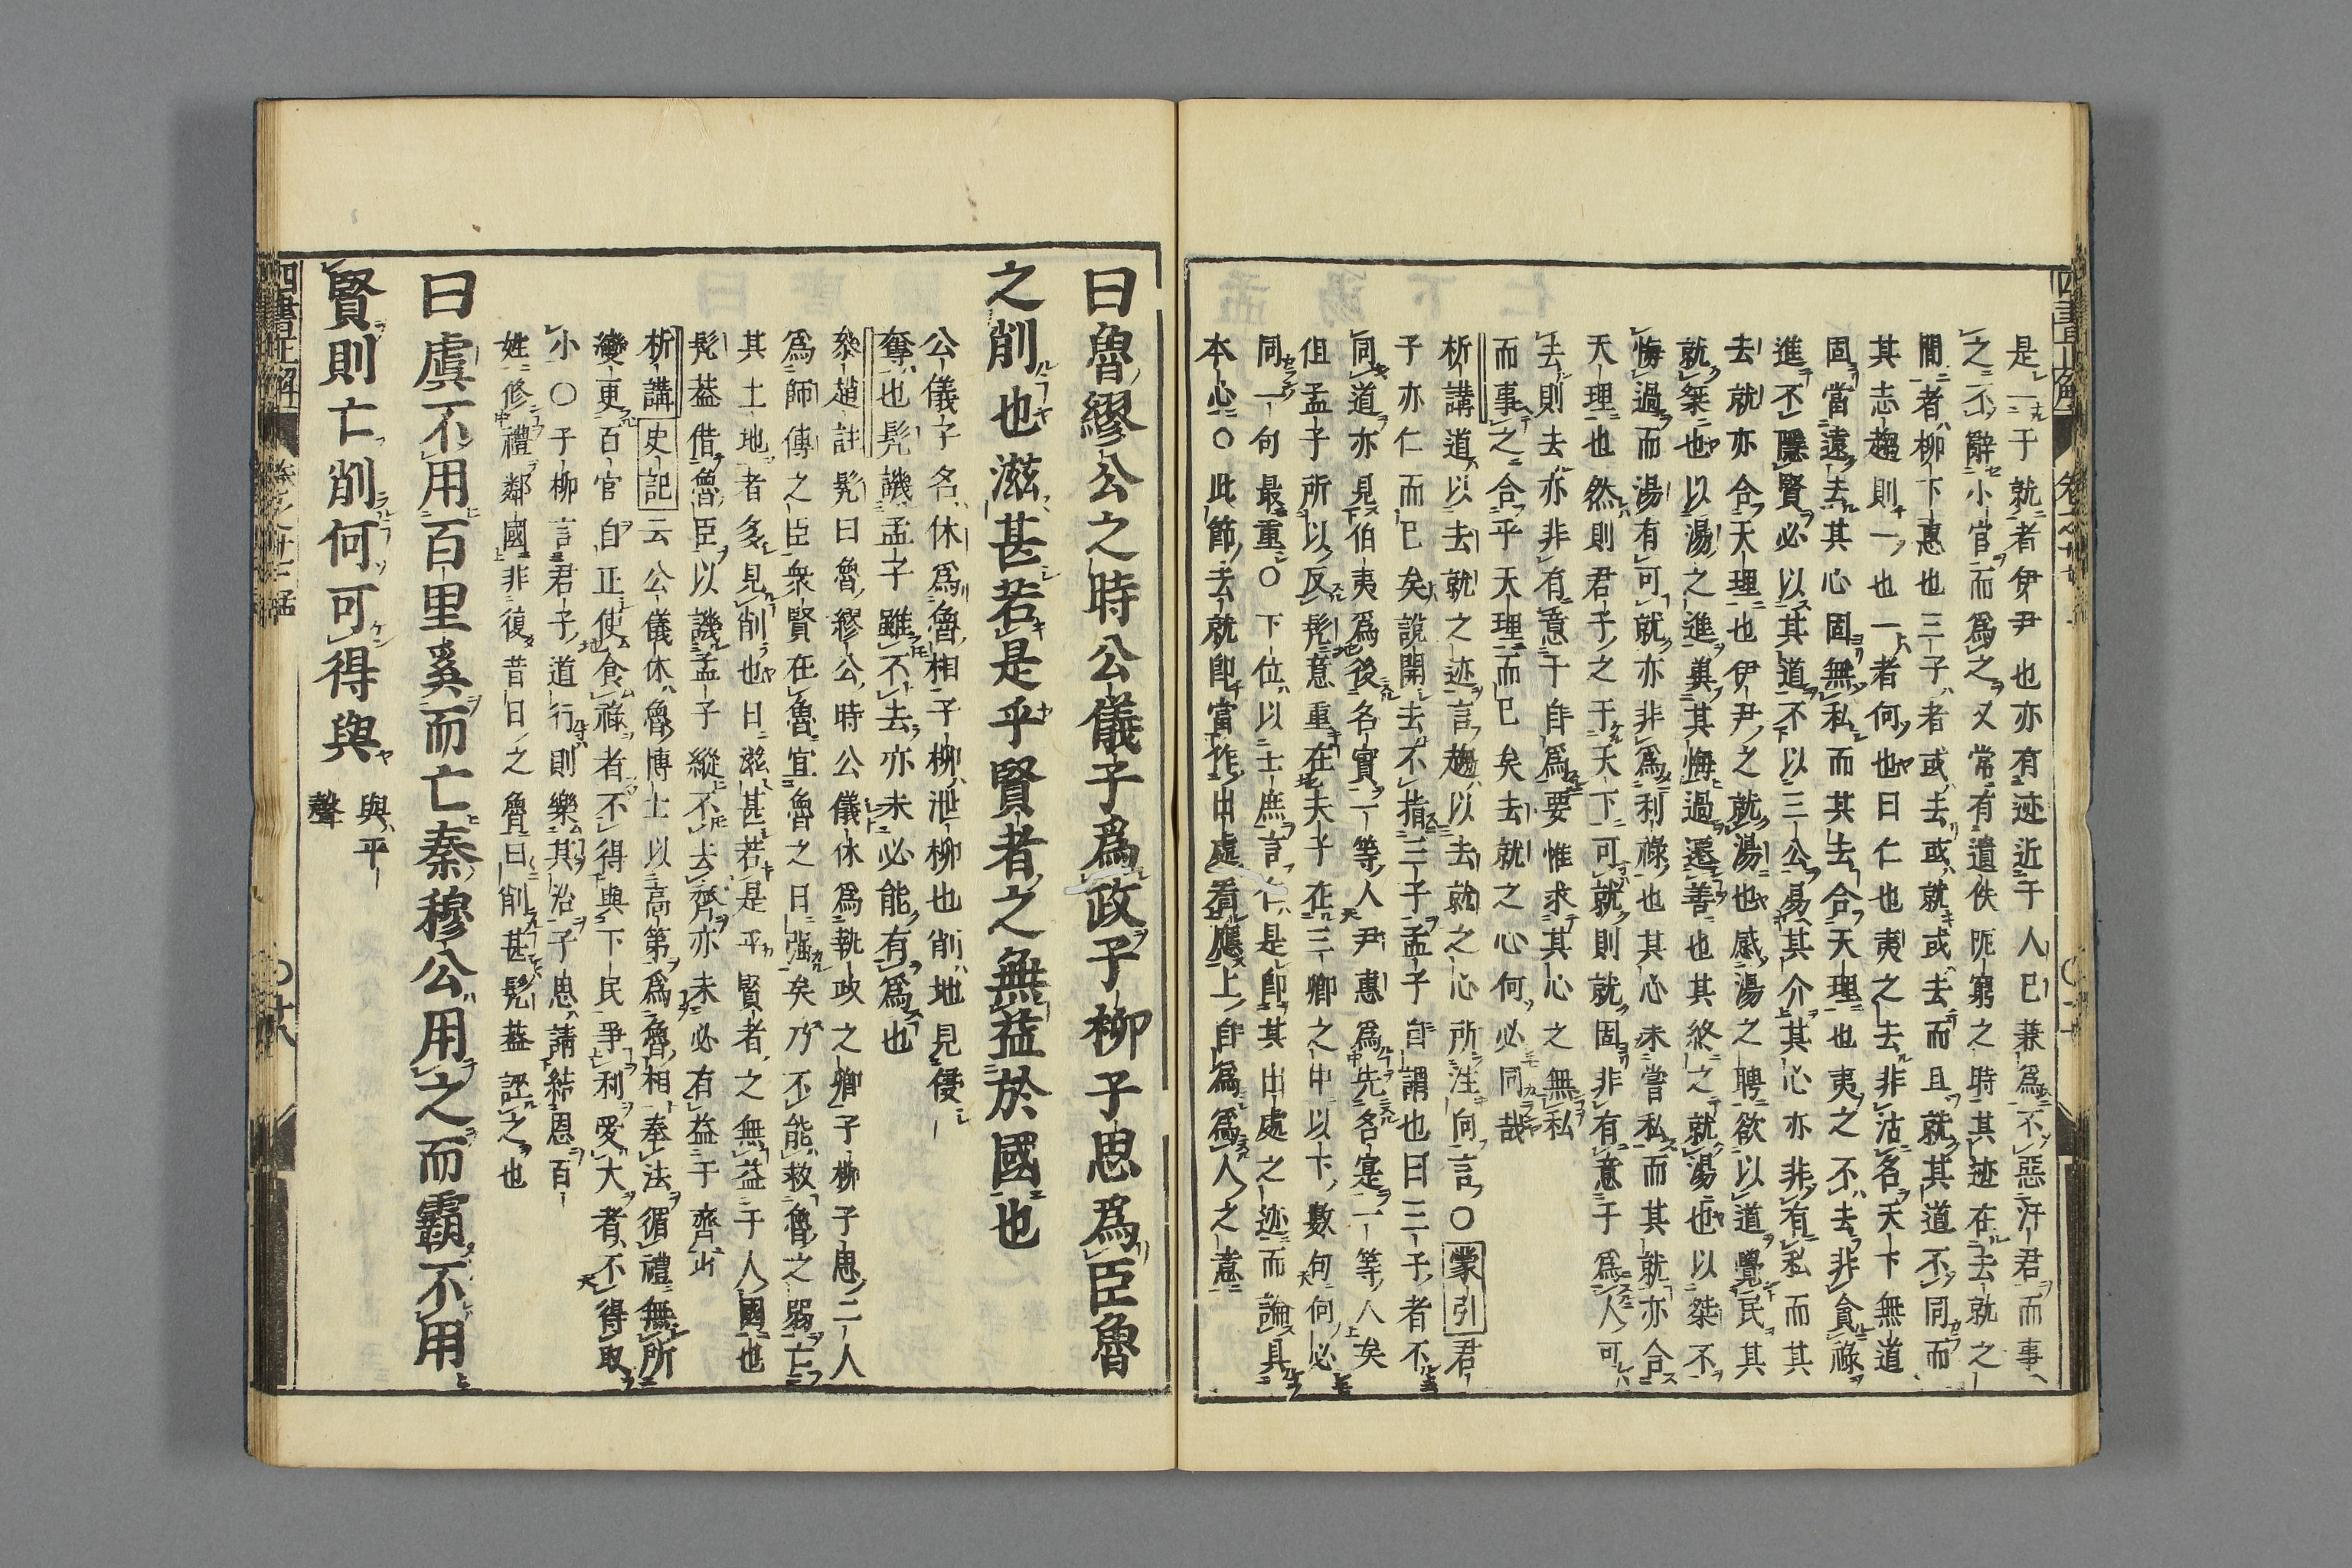 是一于就者伊尹也亦有迹近于人已兼爲不惡汙君而事
之不辭小官而爲之又常有遺佚阨窮之時其迹在去就之
間者柳下惠也三子者或去或就或去而且就其道不同而
其志趨則一也一者何也曰仁也夷之去非沽名天下無道
固當遠去其心固無私而其去合天理也夷之不去非貪祿
進不隱賢必以其道不以三公易其介其心亦非有私而其
去就亦合天理也伊尹之就湯也感湯之聘欲以道覺民其
就桀也以湯之進冀其悔過遷善也其終之就湯也以桀不
悔過而湯有可就亦非爲利祿也其心未嘗私而其就亦合
天理也然則君子之于天下可就則就固非有意于爲人可
去則去亦非有意于自爲要惟求其心之無私
而事之合乎天理而已矣去就之心何必同哉
析講道以去就之迹言趨以去就之心所注向言○蒙引君
子亦仁而已矣說開去不指三子孟子自謂也曰三子者不
同道亦見伯夷爲後名實一等人尹惠爲先名寔一等人矣
但孟子所以反髡意重在夫子在三卿之中以下數句何必
同一句最重○下位以士庶言仁是即其出處之迹而論具
本心○此節去就即當作出處看應上自爲爲人之意
曰魯繆公之時公儀子爲政子柳子思爲臣魯
之削也滋甚若是乎賢者之無益於國也
公儀子名休爲魯相子柳泄柳也削地見侵
奪也髡譏孟子雖不去亦未必能有爲也
叅趙註髡曰魯繆公時公儀休爲執政之卿子柳子思二人
爲師傅之臣衆賢在魯宜魯之日強矣乃不能救魯之弱亡
其土地者多見削也日滋甚若是乎賢者之無益于人國也
髡葢借魯臣以譏孟子縱不去齊亦未必有益于齊爾
析講史記云公儀休魯博士以高第爲魯相奉法循禮無所
變更百官自正使食祿者不得與下民爭利愛大者不得取
小○子柳言君子道行則樂其治子思請結恩百
姓修禮鄰國非復昔日之魯曰削甚髡葢誣之也
曰虞不用百里奚而亡秦穆公用之而霸不用
賢則亡削何可得與
與平
聲
四書正解